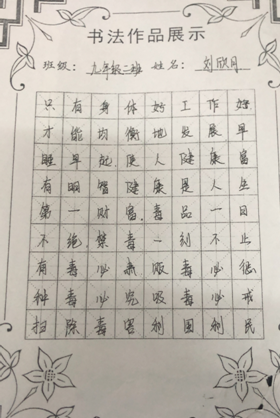 书法作品展示
班级：九年级二班 姓名：刘欣月
只有身体好工作好
才能均衡地发展早
睡早就使人健康富
有明智健康是人生
第一财富。毒品一日
不绝禁毒一刻不止
有毒必肃贩毒必惩
种毒必究吸毒必戒
扫除毒害利国利民